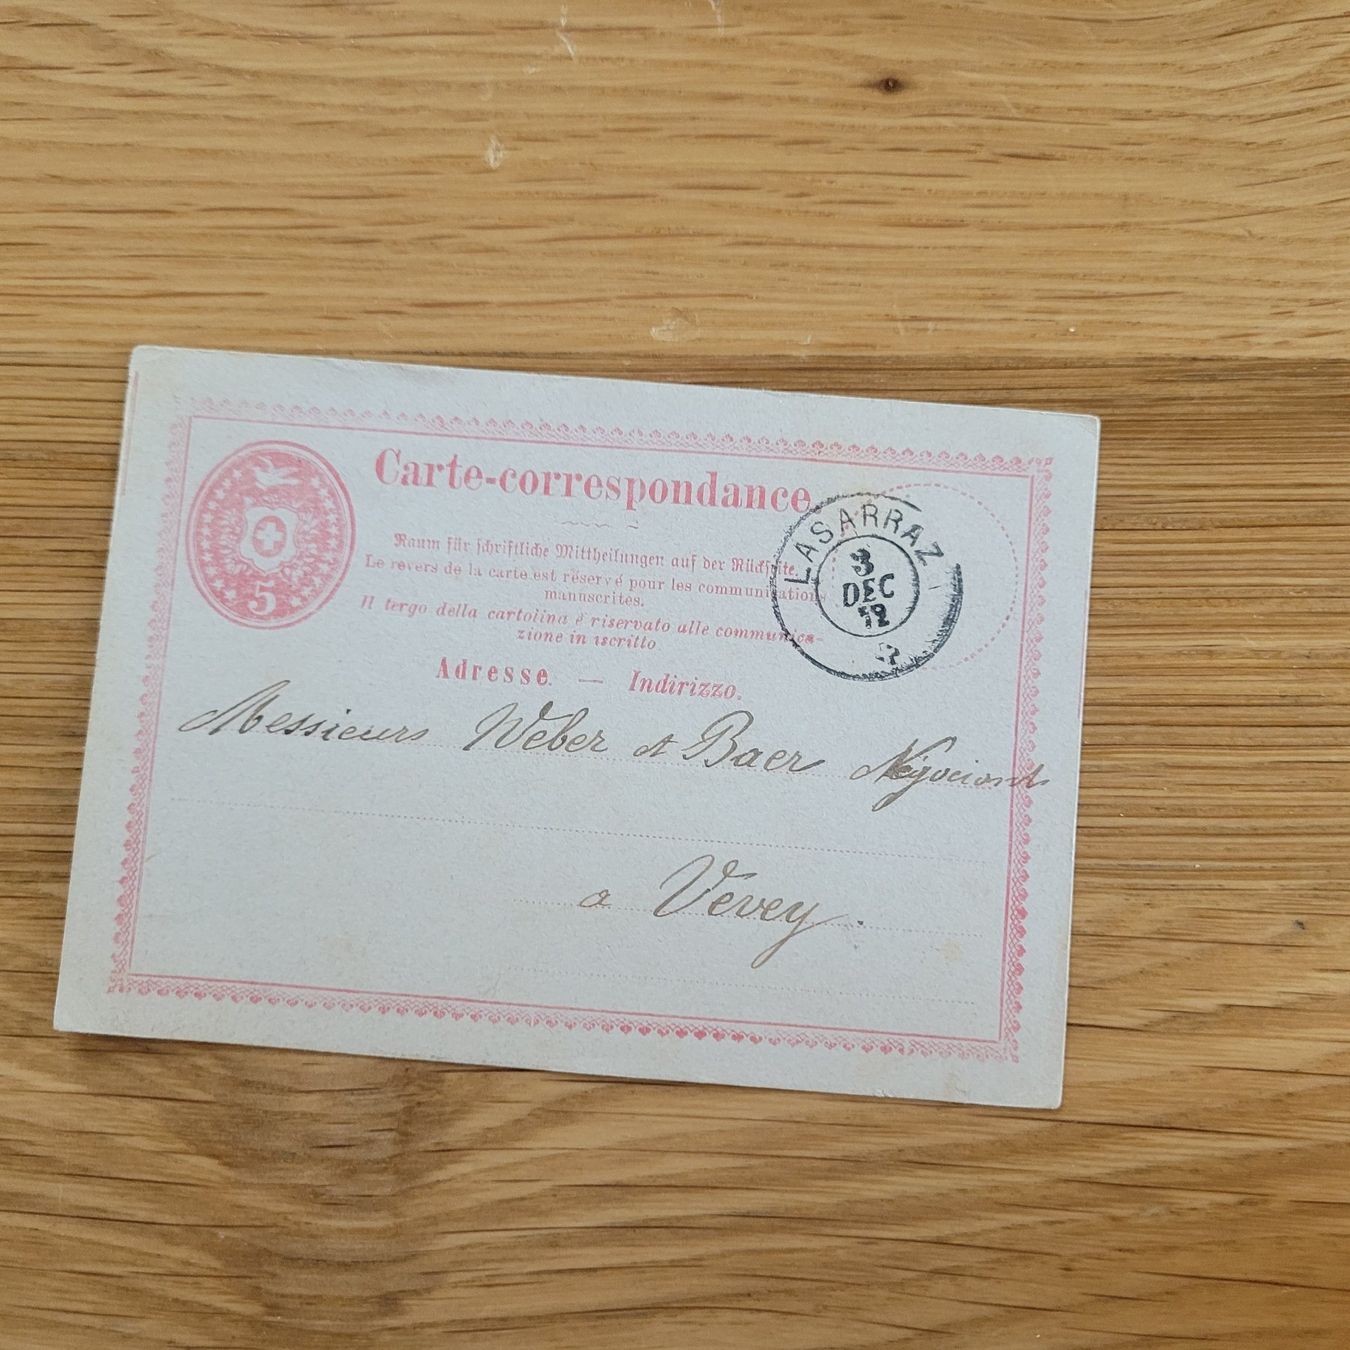 Carte-correspondance.
Raum für schriftliche Mittheilungen auf der Rückseite.
Le revers de la carte est réservé pour les communications
manuscrites.
Il tergo della cartolina è riservato alle communica-
zione in iscritto
Adresse. — Indirizzo.
5
LASARRAZ
3
DEC
72
Messieurs Weber et Baer Négociants
a Vevey.